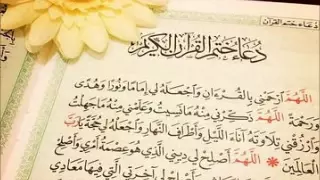 دعاء ختم القرآن
دُعَاءُ خَتْمِ القُرْآنِ الكَرِيمِ
اللَّهُمَّ ارْحَمْنِي بِالقُرْءَانِ وَاجْعَلهُ لِي إِمَامًا وَنُورًا وَهُدًى
وَرَحْمَةً اللَّهُمَّ ذَكِّرْنِي مِنْهُ مَانَسِيتُ وَعَلِّمْنِي مِنْهُ مَاجَهِلْتُ
وَارْزُقْنِي تِلَاوَتَهُ آنَاءَ اللَّيْلِ وَأَطْرَافَ النَّهَارِ وَاجْعَلْهُ لِي حُجَّةً يَارَبَّ
العَالَمِينَ * اللَّهُمَّ أَصْلِحْ لِي دِينِي الَّذِي هُوَ عِصْمَةُ أَمْرِي وَأَصْلِحْ
لِي آخِرَتِي الَّتِي فِيهَا مَعَادِي